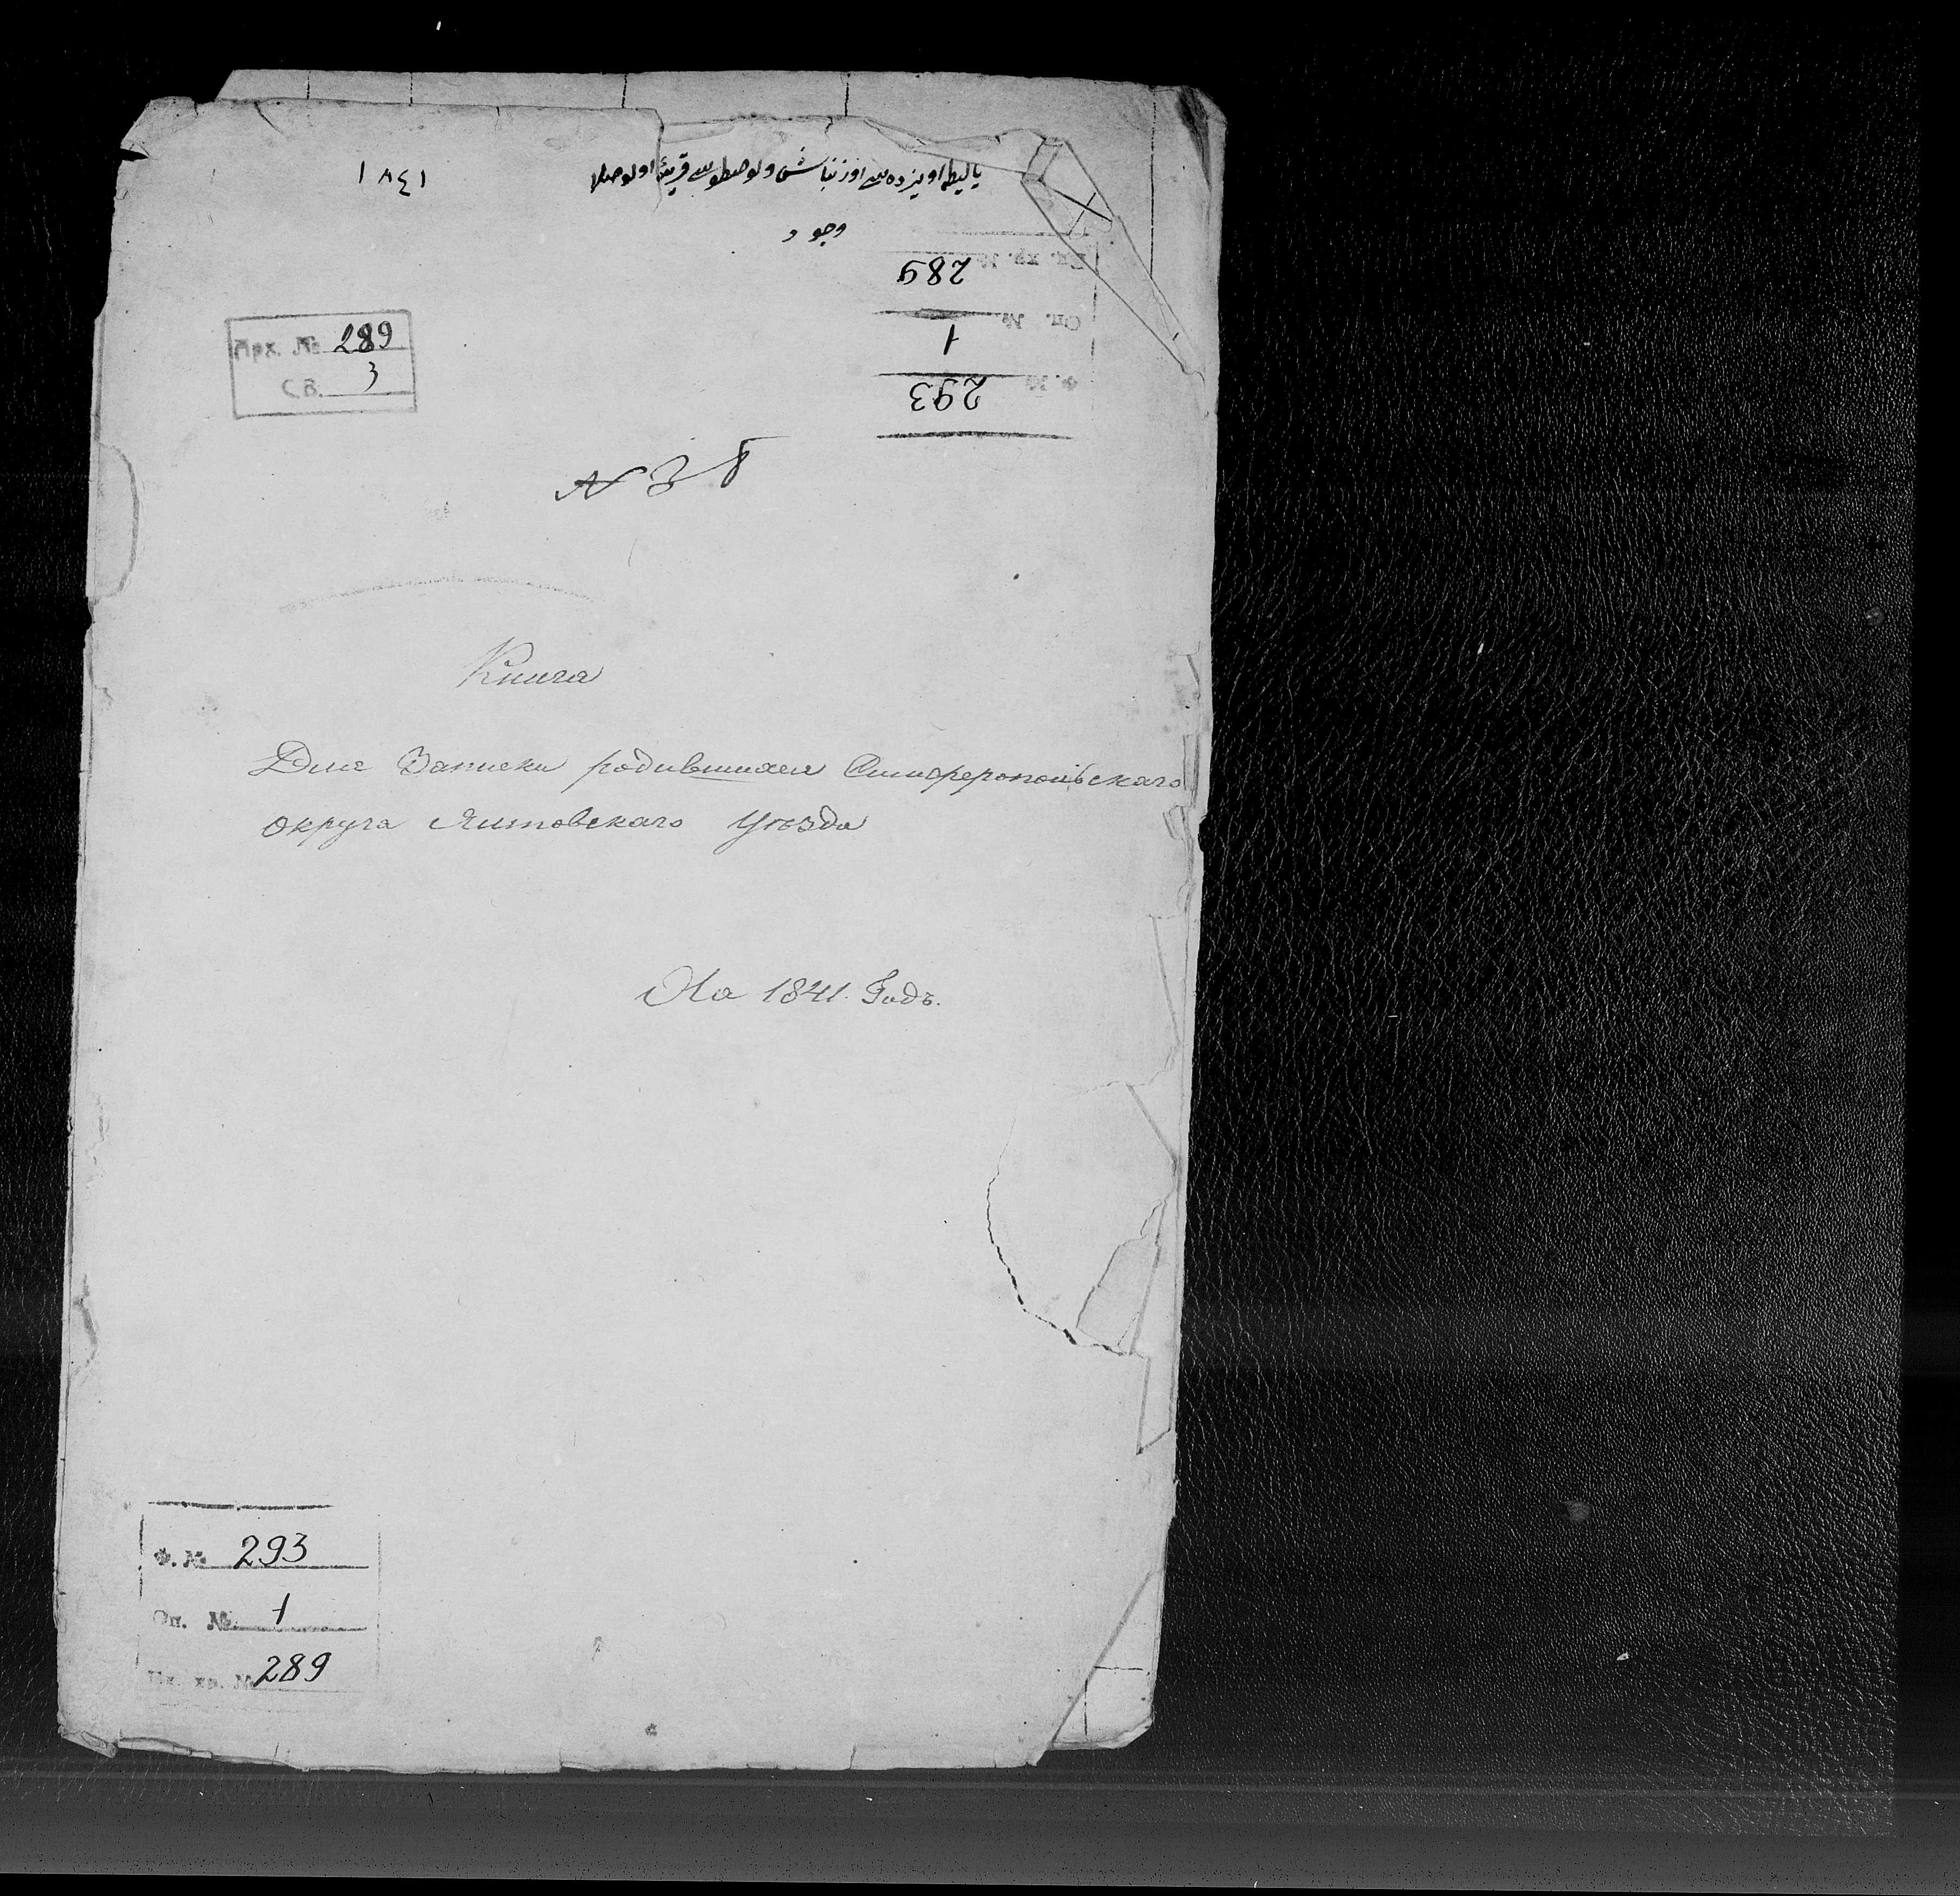 ١٨٤١
ياليطه اويزده سى اوزنباش ولوصطوسى قريۀ اولوصلا
وجود
Ед. хр. № 289
Оп. № 1
Ф. № 293
Арх. № 289
Св. 3
Книга
Для Записки родившихся Симферопольскаго
округа Ялтовскаго уѣзда
На 1841. Годъ.
Ф. № 293
Оп. № 1
Ед. хр. № 289